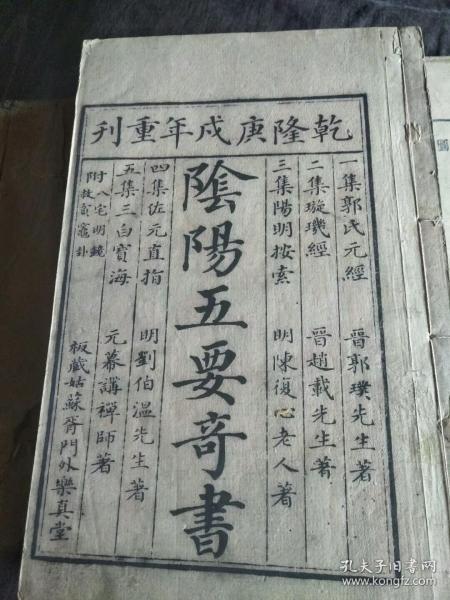 乾隆庚戌年重刊
一集郭氏元經 晉郭璞先生著
二集璇璣經 晉趙載先生著
三集陽明按索 明陳復心老人著
陰陽五要奇書
四集佐元直指 明劉伯溫先生著
五集三白寶海 元幕講禪師著
附八宅明鏡
附救貧竈卦
板藏姑蘇胥門外樂真堂
孔夫子旧书网
www.kongfz.com